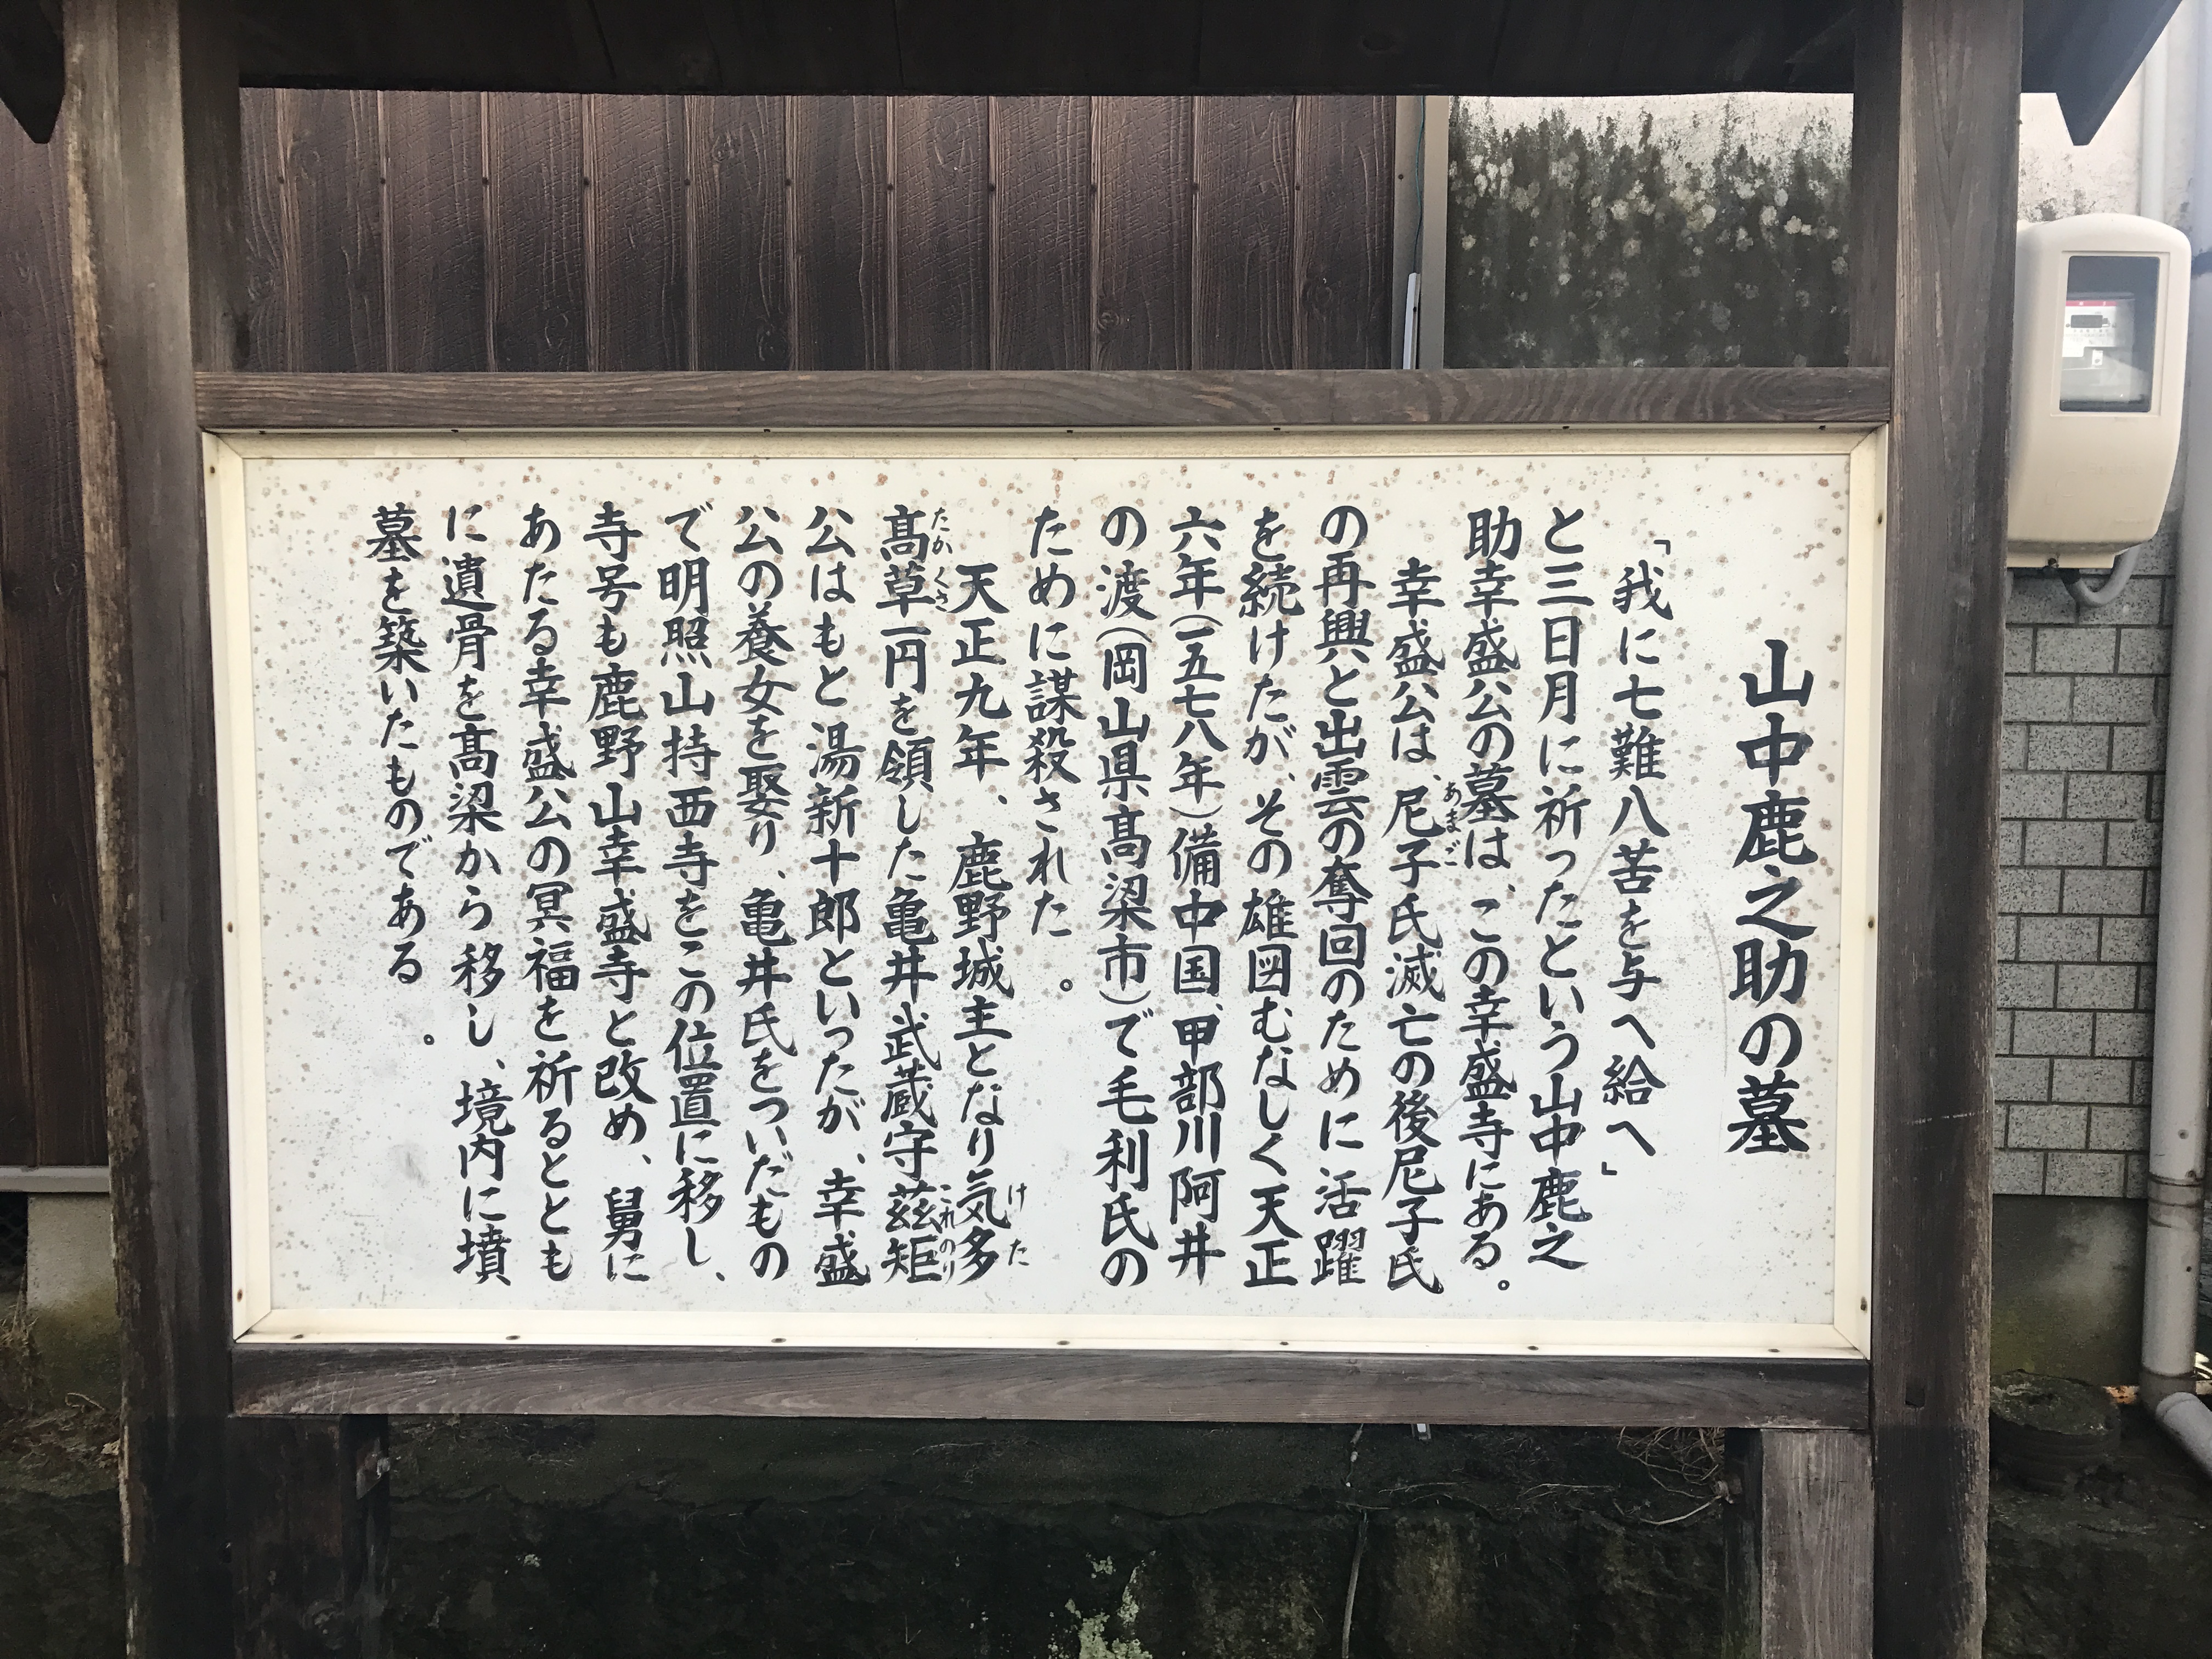 山中鹿之助の墓
「我に七難八苦を与へ給へ」
と三日月に祈ったという山中鹿之
助幸盛公の墓は、この幸盛寺にある。
幸盛公は、尼子氏滅亡の後尼子氏
の再興と出雲の奪回のために活躍
を続けたが、その雄図むなしく天正
六年(一五七八年)備中国、甲部川阿井
の渡(岡山県髙梁市)で毛利氏の
ために謀殺された。
天正九年、鹿野城主となり気多
髙草一円を領した亀井武蔵守茲矩
公はもと湯新十郎といったが、幸盛
公の養女を娶り、亀井氏をついだもの
で明照山持西寺をこの位置に移し、
寺号も鹿野山幸盛寺と改め、舅に
あたる幸盛公の冥福を祈るととも
に遺骨を髙梁から移し、境内に墳
墓を築いたものである。